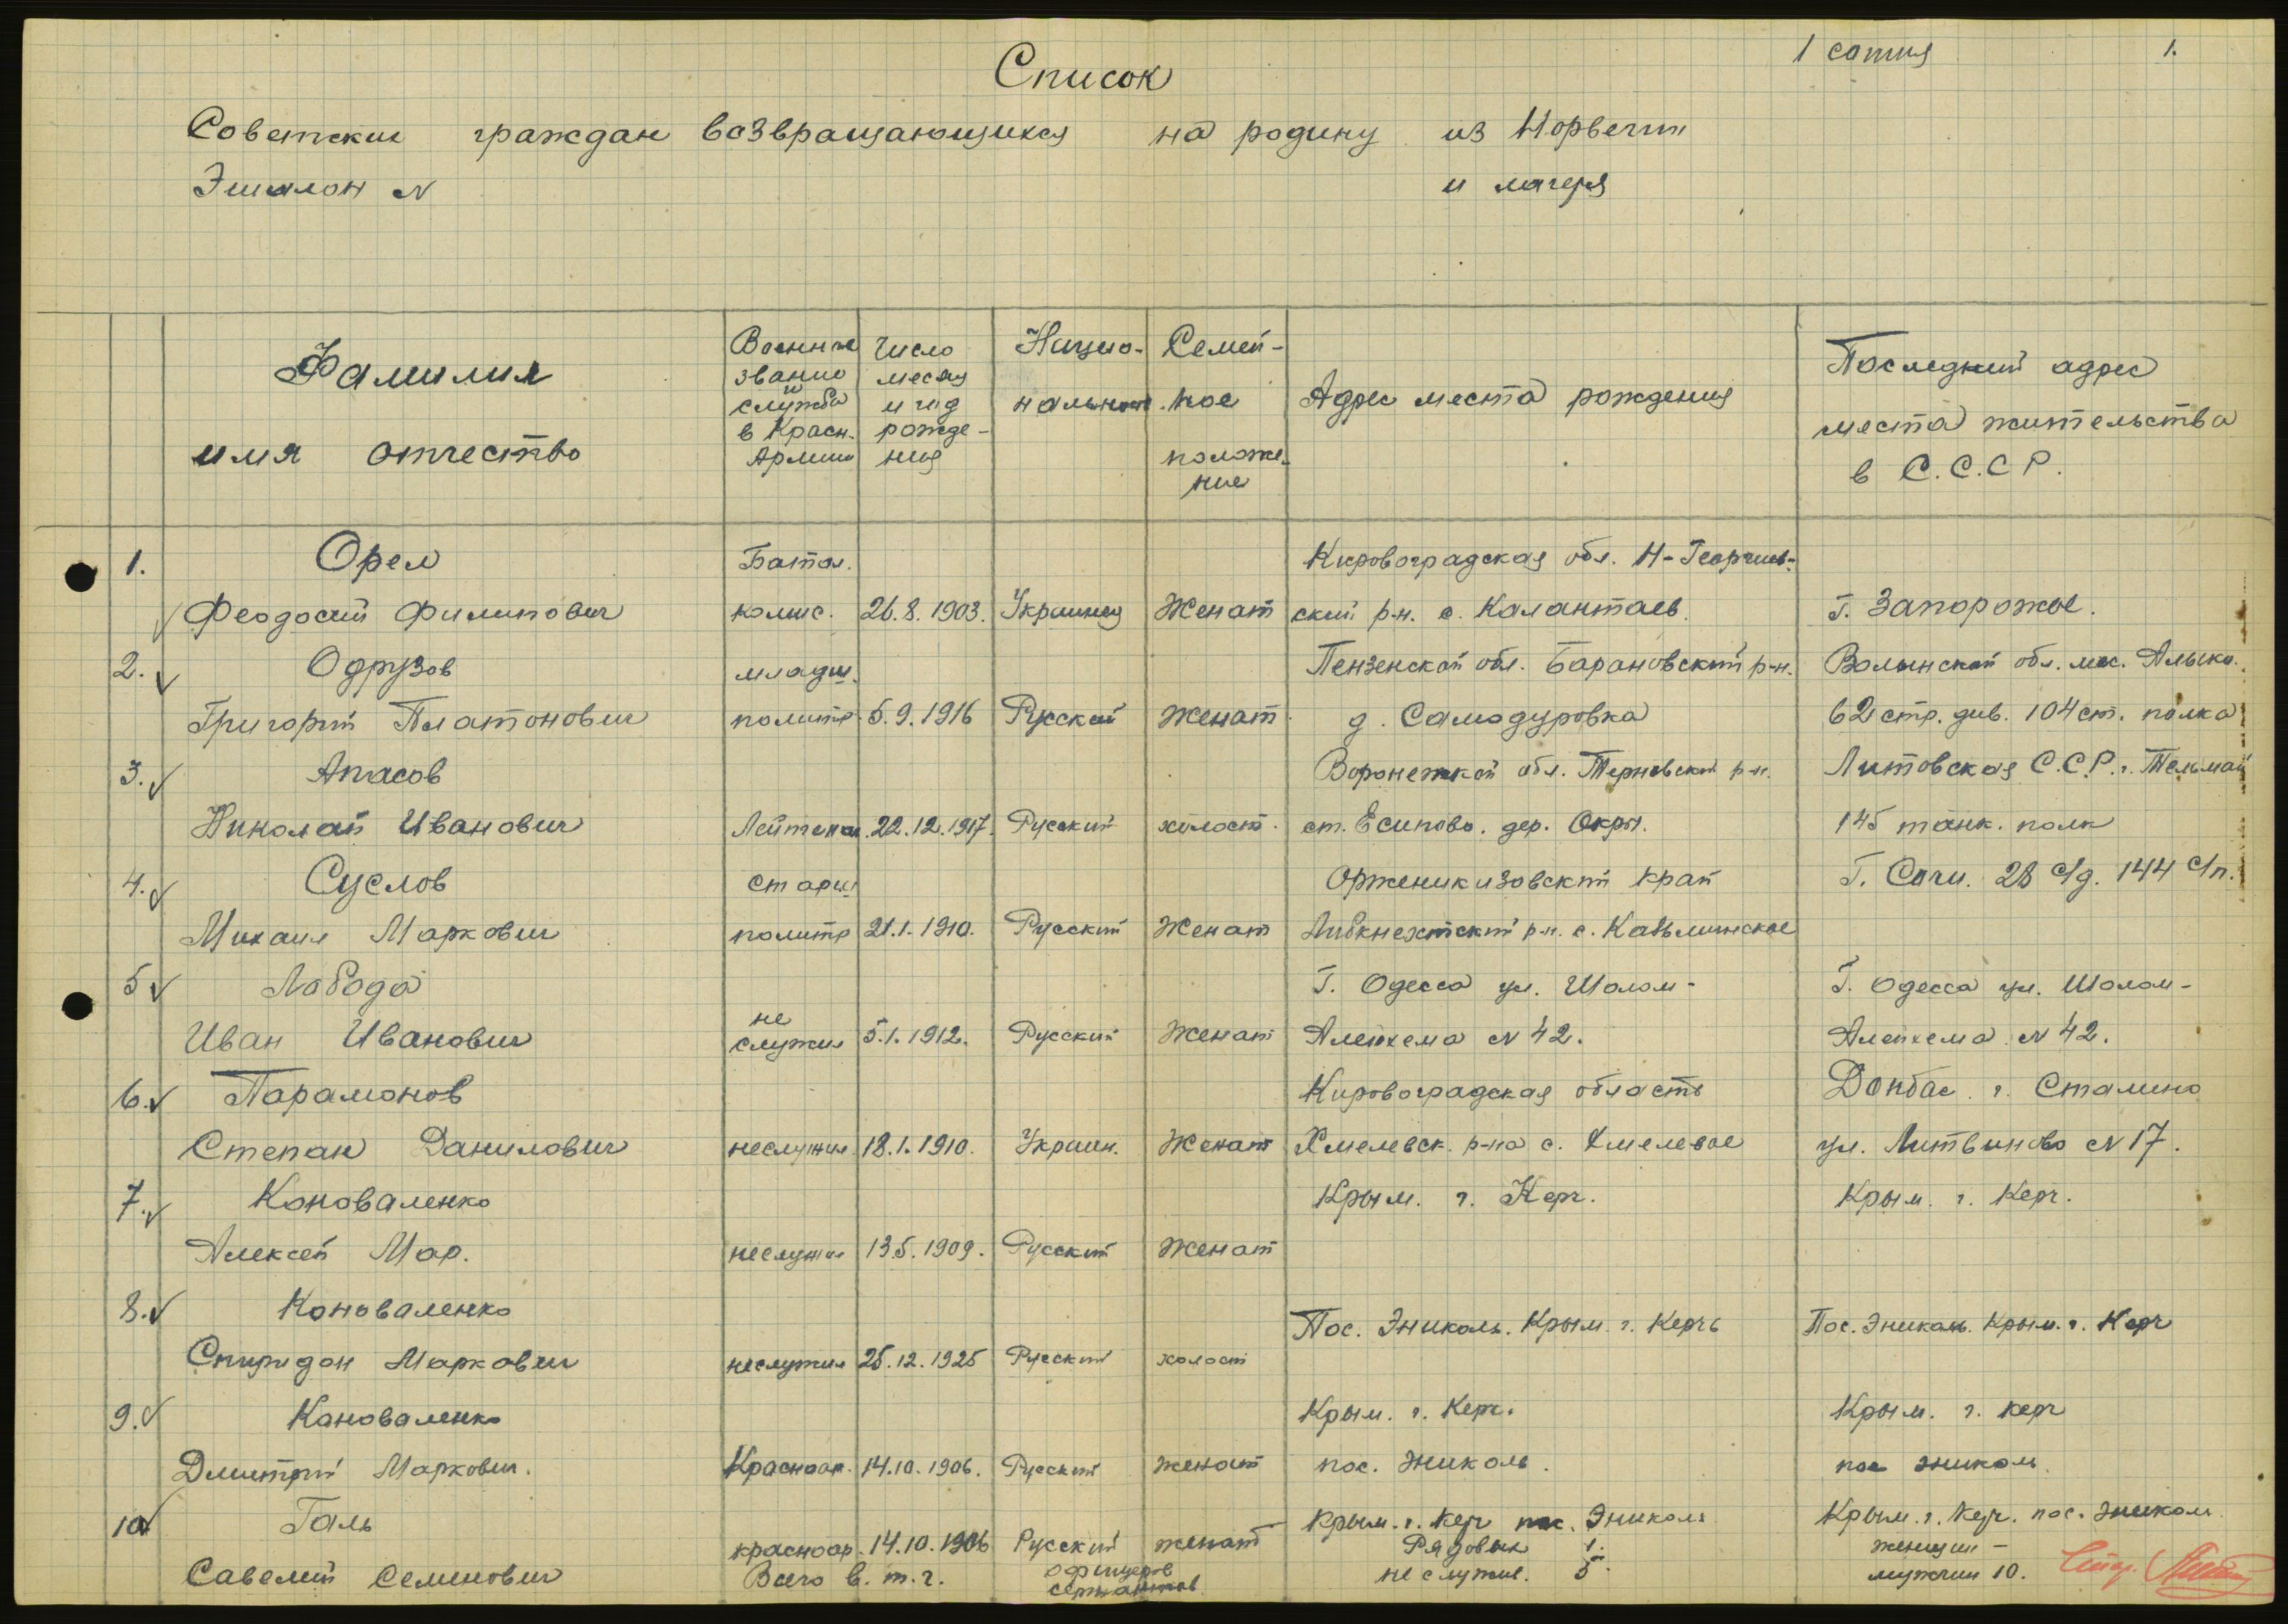 1 сотня 1.
Список
Советских граждан возвращающихся на родину из Норвегии
Эшалон N и лагеря
Фамилия имя отчество
Военные звание и служба в Красн. Армии
Число месяц и год рождения
Национальност
Семейное положение
Адрес места рождения
Последний адрес места жительства в С.С.С.Р.
1. Орел Батал. Кировоградская обл. Н-Георгиев-
Феодосий Филипович комис. 26.8.1903. Украинец Женат ский р-н. с. Калантаев. Г. Запорожье.
2. Одрузов младш. Пензенской обл. Барановский р-н. Волынской обл. мес. Алыка.
Григорий Платонович политр. 5.9.1916 Русский Женат. д. Самодуровка 62 стр. див. 104 ст. полка
3. Апасов Воронежской обл. Терновский р-н. Литовская С.С.Р. г. Тельмай
Николай Иванович Лейтенан. 22.12.1917. Русский холост. ст. Есипово. дер. Окры. 145 танк. полк
4. Суслов старш Орженикизовский край Г. Сочи. 28 с/д. 144 с/п.
Михаил Маркович политр 21.1.1910. Русский Женат Либкнехтский р-н. с. Казьминское
5 Лобода Г. Одесса ул. Шолом- Г. Одесса ул. Шолом-
Иван Иванович не служил 5.1.1912. Русский Женат Алейхема N 42. Алейхема N 42.
6. Парамонов Кировоградская область Донбас. г. Сталино
Степан Данилович неслужил 18.1.1910. Украин. Женат Хмелевск. р-на с. Хмелевое ул. Литвиново N 17.
7. Коноваленко Крым. г. Керч. Крым. г. Керч.
Алексей Мар. неслужил 13.5.1909. Русский Женат
8. Коноваленко Пос. Эниколь. Крым. г. Керчь Пос. Эниколь. Крым. г. Керч
Спиридон Маркович неслужил 25.12.1925 Русский холост
9. Кановаленко Крым. г. Керч. Крым. г. Керч
Дмитрий Маркович. Красноар. 14.10.1906. Русский женат пос. Эниколь. пос Эниколь.
10 Галь Крым. г. Керч пос. Эниколь Крым. г. Керч. пос. Эниколь
красноар. 14.10.1906 Русский женат Рядовых 1. женщин -
Савелий Семенович Всего в. т. ч. офицеров сержантов не служив. 5. мужчин 10.